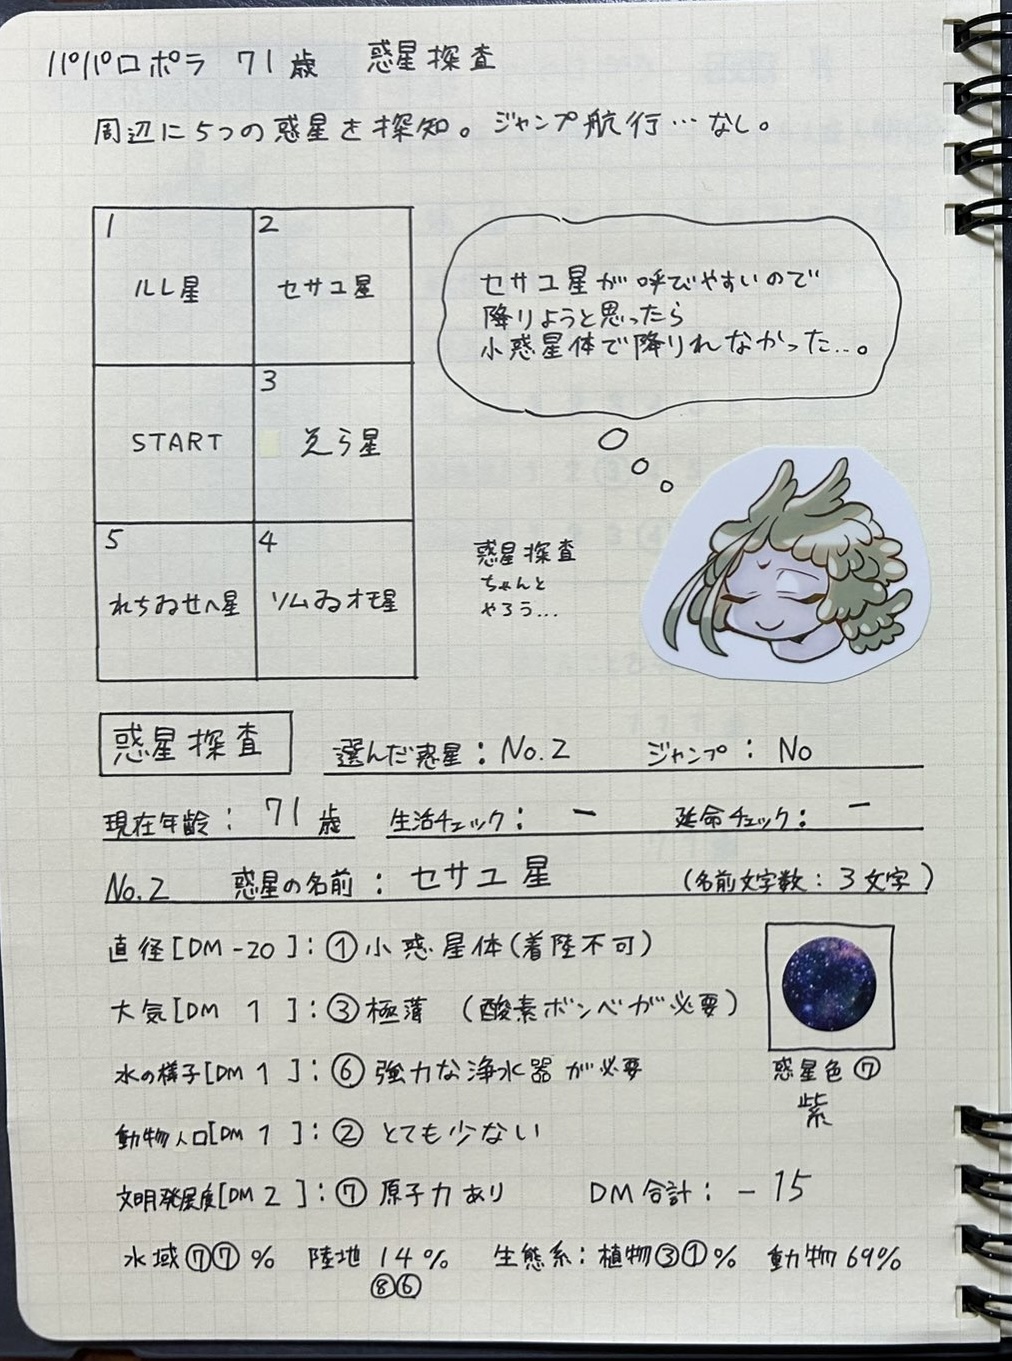 パパロポラ 71歳 惑星探査
周辺に5つの惑星を探知。ジャンプ航行…なし。
1
ルレ星
2
セサユ星
START
3
えら星
5
れちゐせヘ星
4
ソムゐオモ星
セサユ星が呼びやすいので
降りようと思ったら
小惑星体で降りれなかった…。
惑星探査
ちゃんと
やろう…
惑星探査
選んだ惑星：No.2 ジャンプ：No
現在年齢：71歳 生活チェック：－ 延命チェック：－
No.2 惑星の名前：セサユ星 （名前文字数：3文字）
直径[DM -20]：①小惑星体（着陸不可）
大気[DM 1]：③極薄 （酸素ボンベが必要）
水の様子[DM 1]：⑥強力な浄水器が必要
惑星色⑦
紫
動物人口[DM 1]：②とても少ない
文明発展度[DM 2]：⑦原子力あり DM合計：－15
水域⑦⑦% 陸地14% 生態系：植物③①% 動物69%
⑧⑥